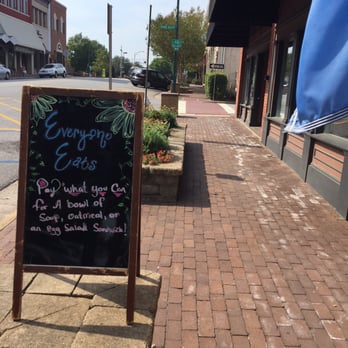 Everyone
Eats
Pay what you Can
for A bowl of
Soup, Oatmeal, or
an Egg Salad Sandwich!